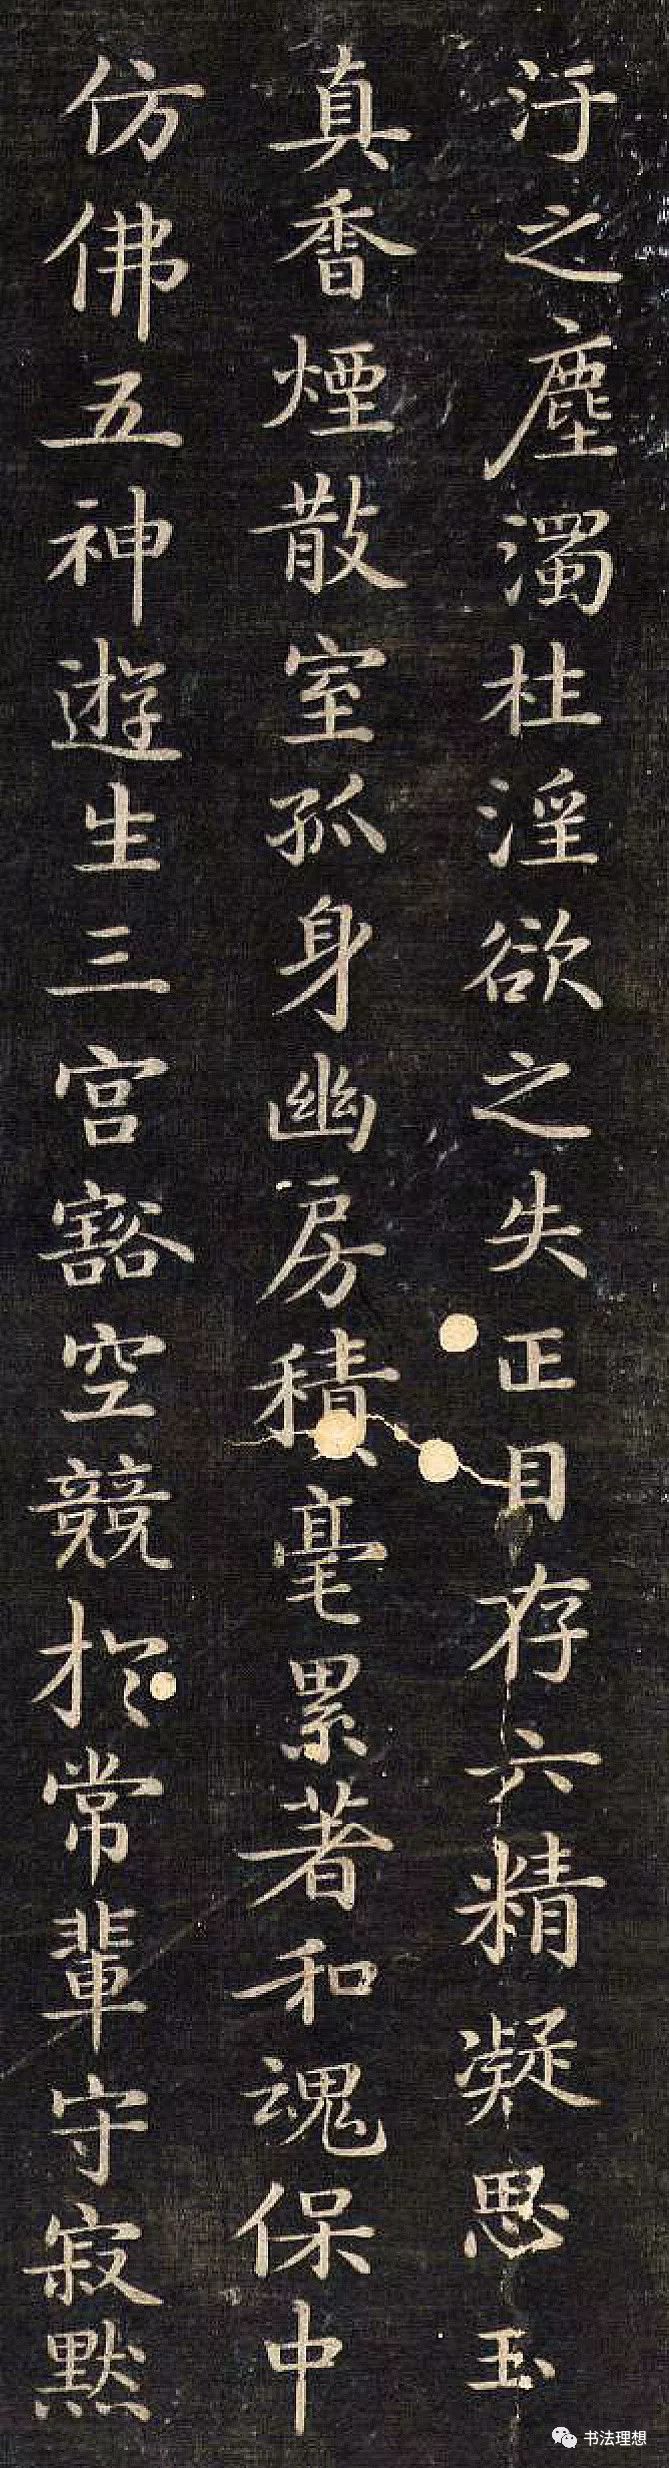 汙之塵濁杜淫欲之失正目存六精凝思玉
真香煙散室孤身幽房積毫累著和魂保中
仿佛五神遊生三宮豁空競於常輩守寂默
书法理想